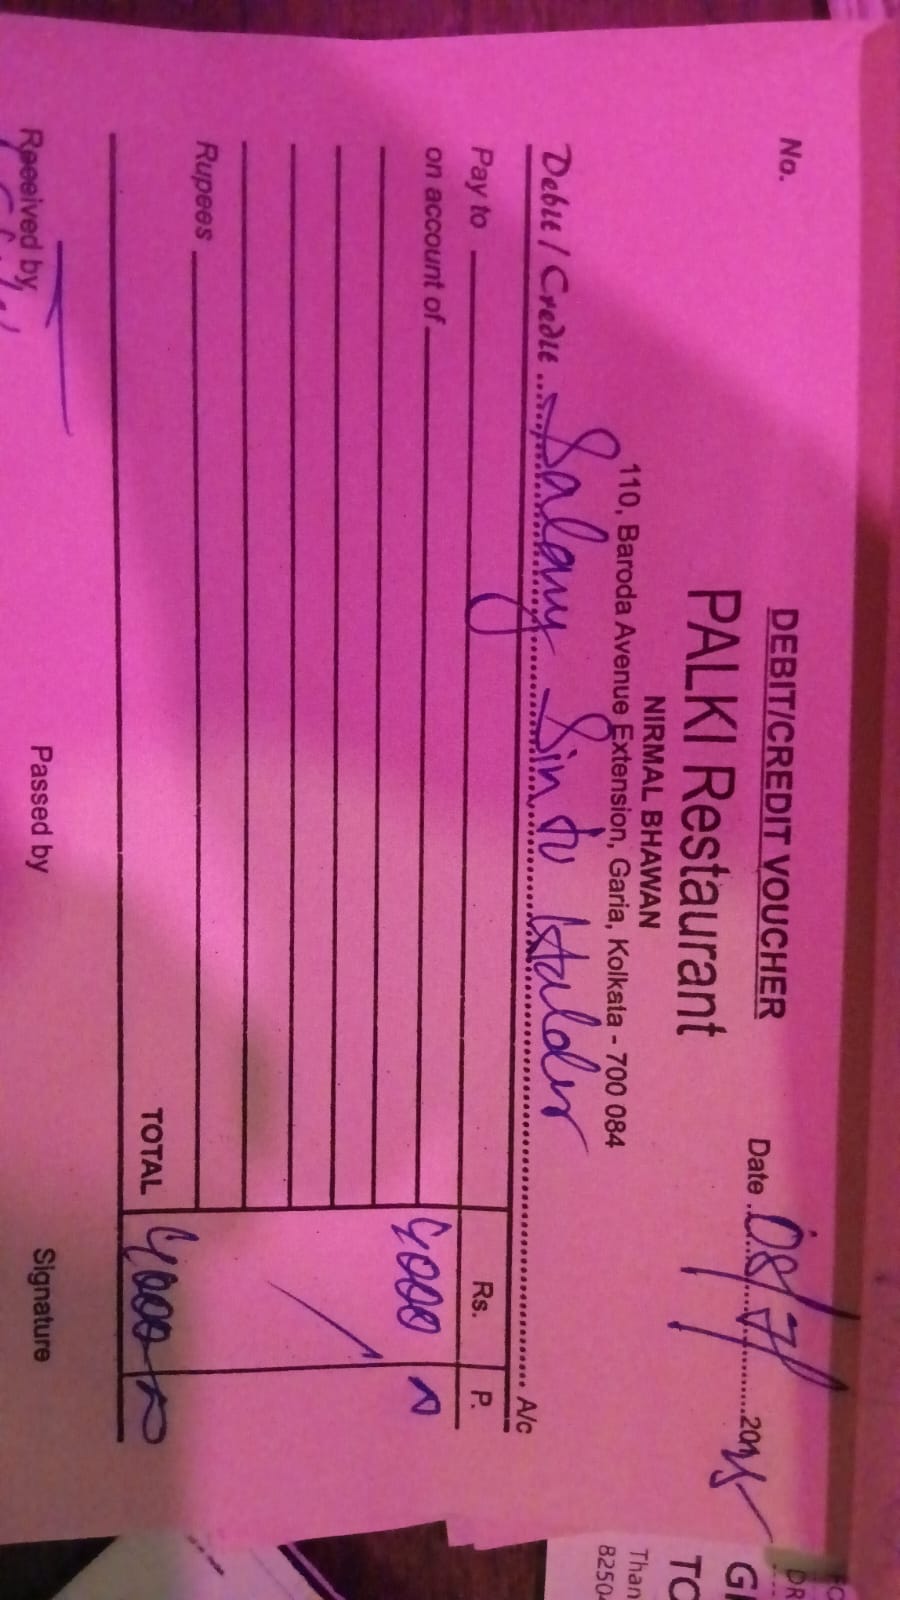 No.
DEBIT/CREDIT VOUCHER
Date 08/7/ 2025
PALKI Restaurant
NIRMAL BHAWAN
110, Baroda Avenue Extension, Garia, Kolkata - 700 084
Debit / Credit Salary Sintu Halder A/c
Pay to Rs. P.
on account of 4000
Rupees
TOTAL 4000
Received by Passed by Signature
Than
8250